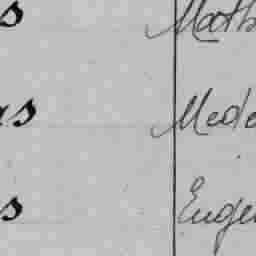 s Math
as Mede
s Euge